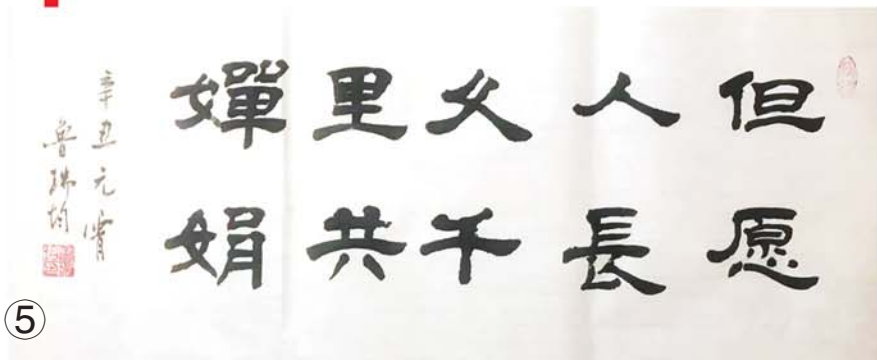 但愿
人長
久千
里共
嬋娟
辛丑元宵
魯
⑤